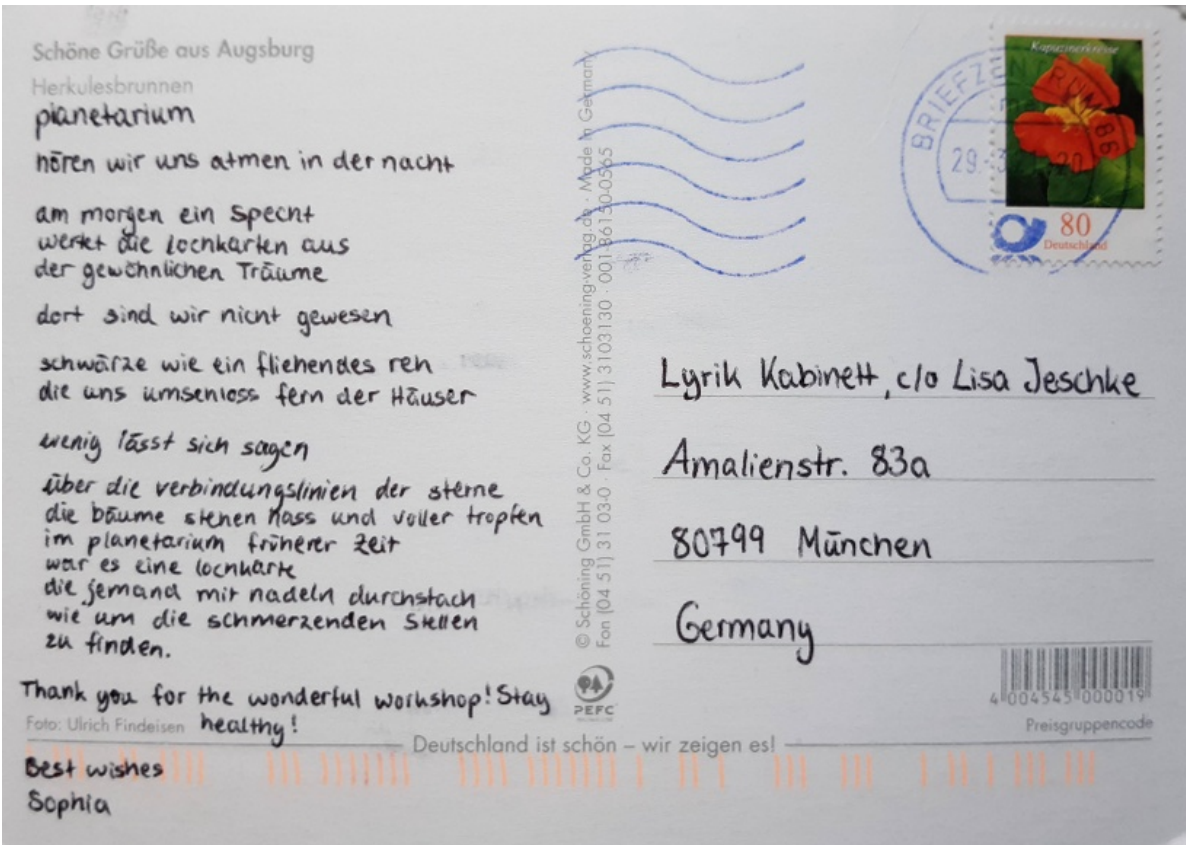 Schöne Grüße aus Augsburg
Herkulesbrunnen
planetarium
hören wir uns atmen in der nacht
am morgen ein Specht
werkt die lochkarten aus
der gewöhnlichen Träume
dort sind wir nicht gewesen
schwärze wie ein fliehendes reh
die uns umschloss fern der Häuser
wenig lässt sich sagen
über die verbindungslinien der sterne
die bäume stehen nass und voller tropfen
im planetarium früherer Zeit
war es eine lochkarte
die jemand mit nadeln durchstach
wie um die schmerzenden Stellen
zu finden.
Thank you for the wonderful workshop! Stay
healthy!
Foto: Ulrich Findeisen
Best wishes
Sophia
© Schöning GmbH & Co. KG · www.schoening-verlag.de · Made in Germany
Fon (04 51) 31 03-0 · Fax (04 51) 3103130 · 001-86150-0565
PEFC
Deutschland ist schön – wir zeigen es!
Kapuzinerkresse
80
Deutschland
BRIEFZENTRUM 86
29.
20
Lyrik Kabinett, c/o Lisa Jeschke
Amalienstr. 83a
80799 München
Germany
4 004545 000019
Preisgruppencode